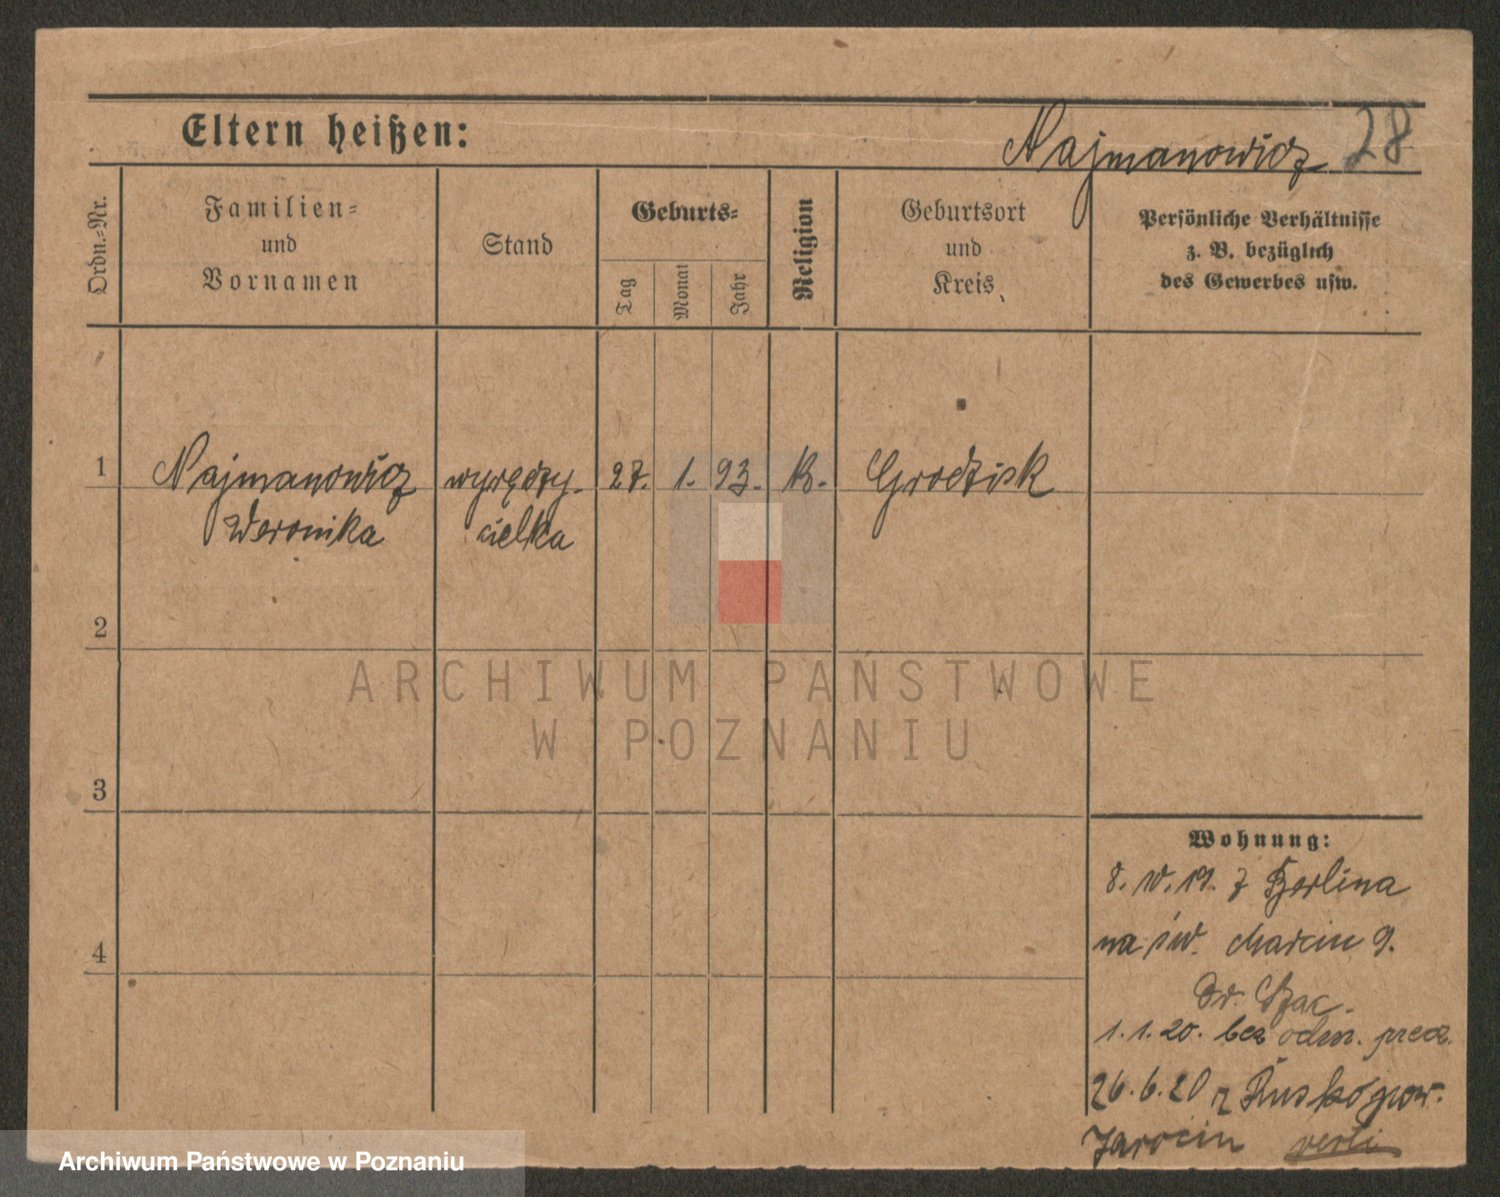 Eltern heißen:
Najmanowicz 28
Ordn.-Nr.
Familien-
und
Vornamen
Stand
Geburts-
Tag
Monat
Jahr
Religion
Geburtsort
und
Kreis
Persönliche Verhältnisse
z. B. bezüglich
des Gewerbes usw.
1 Najmanowicz wyręczy- 27. 1. 93. K. Grodzisk
Weronika cielka
2
3
4
Wohnung:
8. 19. z Berlina
na św. Marcin 9.
Dr.
1.1.20. bez odm.
26.6.20 z Rusko pow.
Jarocin verti
ARCHIWUM PAŃSTWOWE
W POZNANIU
Archiwum Państwowe w Poznaniu